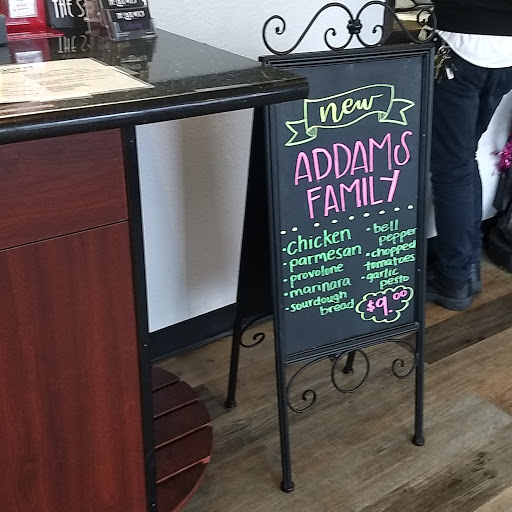 THE S
new
ADDAMS
FAMILY
• chicken
• parmesan
• provolone
• marinara
• sourdough
bread
• bell
pepper
• chopped
tomatoes
• garlic
pesto
$9.00